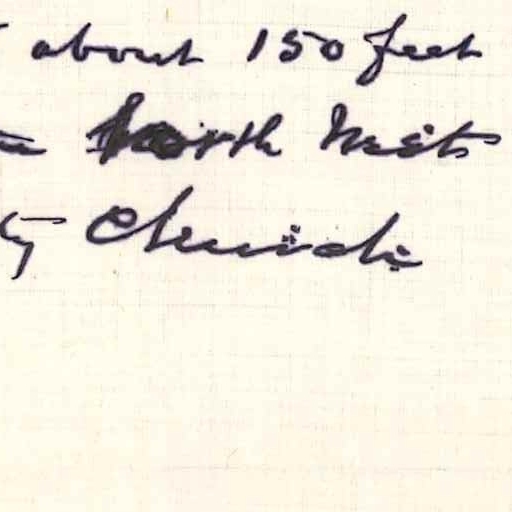 about 150 feet
North West
Church